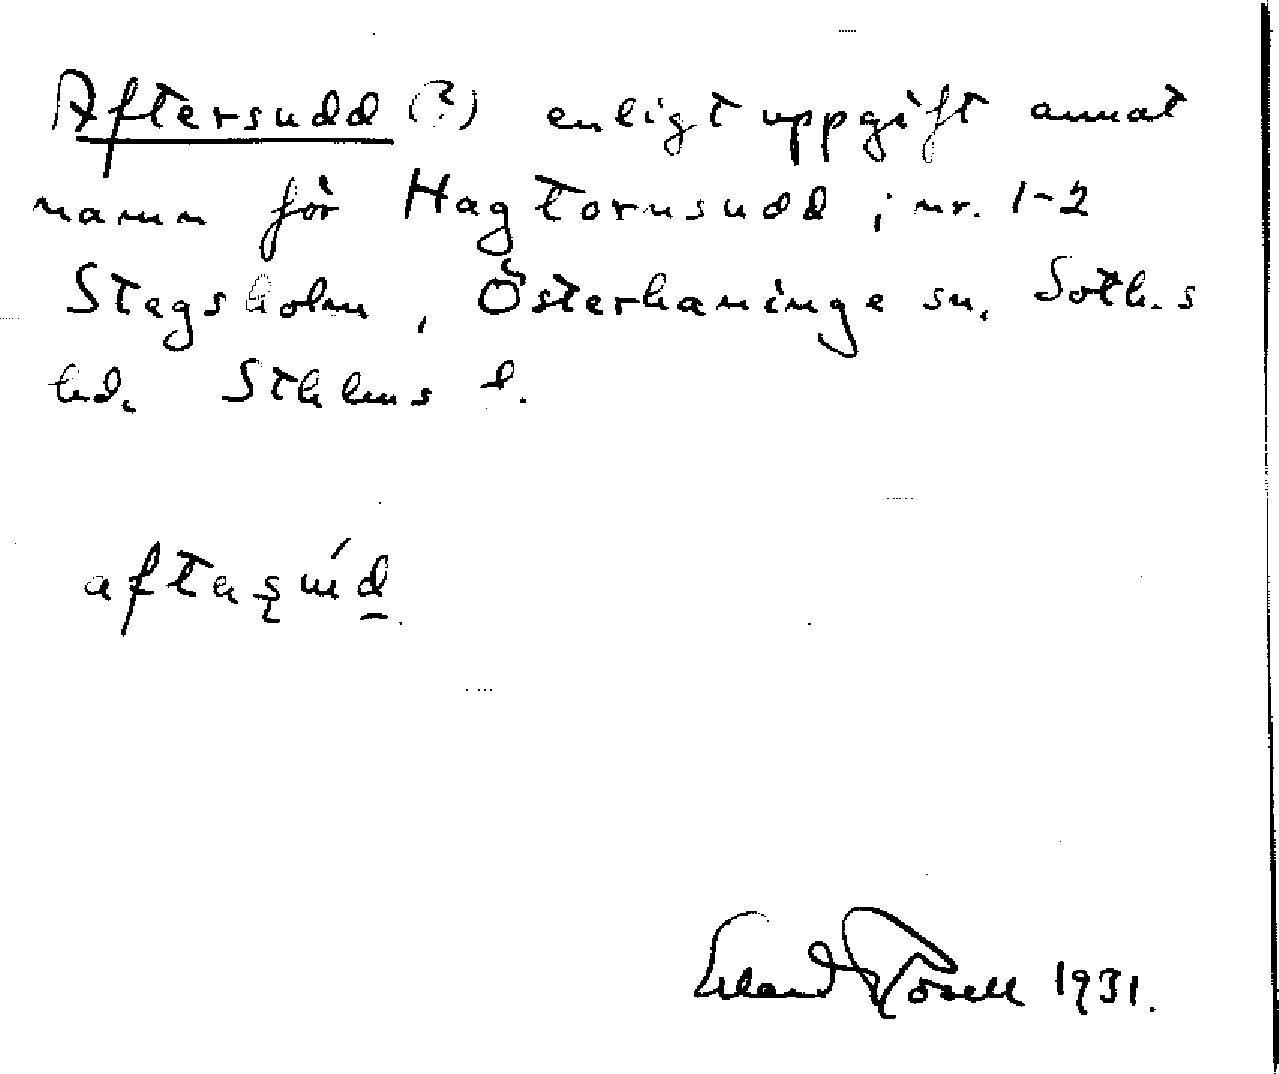 Aftersudd (?) enligt uppgift annat
namn för Hagtornsudd, nr. 1-2
Stegsholm, Österhaninge sn. Soth.s
hd. Sthlms l.
aftaṣu̍d
Erland Rosell 1931.